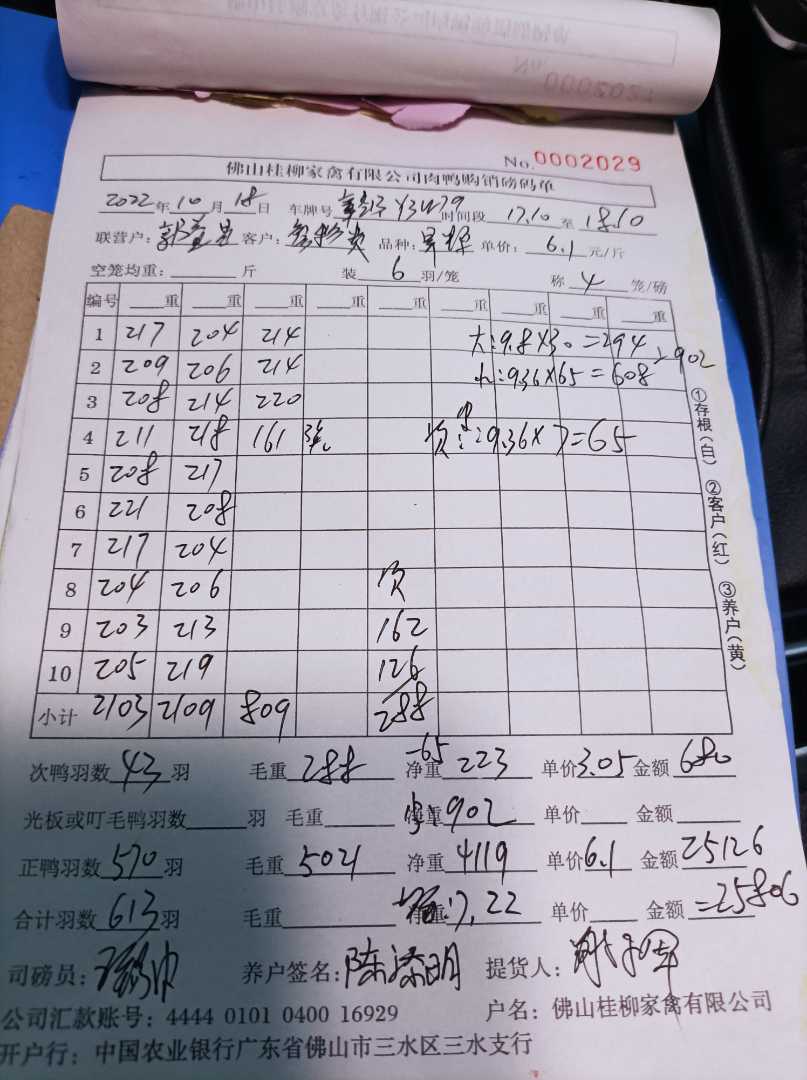 No. 0002029
佛山桂柳家禽有限公司肉鸭购销磅码单
2022年10月18日 车牌号 Y3W79 时间段 17.10 至 18.10
联营户: 客户: 品种: 单价: 6.1 元/斤
空笼均重: 斤 装 6 羽/笼 称 4 笼/磅
编号 重 重 重 重 重 重 重 重
1 217 204 214 大:9.8×30=294
2 209 206 214 小:9.36×65=608 902
3 208 214 220
4 211 218 161 9.36×7=65
5 208 217
6 221 208
7 217 204
8 204 206 次
9 203 213 162
10 205 219 126
小计 2103 2109 809 288
①存根(白) ②客户(红) ③养户(黄)
次鸭羽数 43 羽 毛重 288 -65 净重 223 单价 3.05 金额 680
光板或叮毛鸭羽数 羽 毛重 净重 902 单价 金额
正鸭羽数 570 羽 毛重 5021 净重 4119 单价 6.1 金额 25126
合计羽数 613 羽 毛重 净重 7.22 单价 金额 =25806
司磅员: 养户签名: 陈添明 提货人:
公司汇款账号: 4444 0101 0400 16929 户名: 佛山桂柳家禽有限公司
开户行: 中国农业银行广东省佛山市三水区三水支行